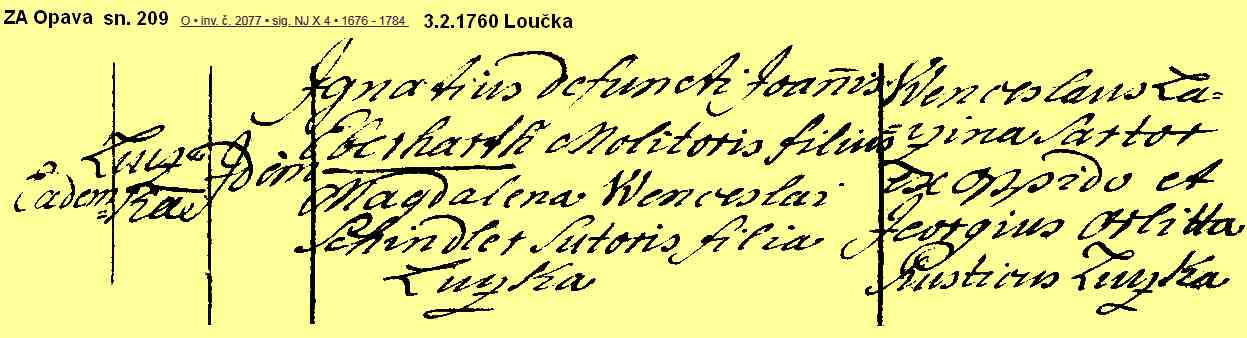 ZA Opava sn. 209 O • inv. č. 2077 • sig. NJ X 4 • 1676 - 1784 3.2.1760 Loučka
Eadem
Luyz=
Kae
Idem
Ignatius defuncti Joan̄is
Eberharth Molitoris filius
Magdalena Wenceslai
Schindler Sutoris filia
Luyzka
Wenceslaus La=
=yina Sartor
Ex oppido et
Georgius Orlitta
Rusticus Luyzka